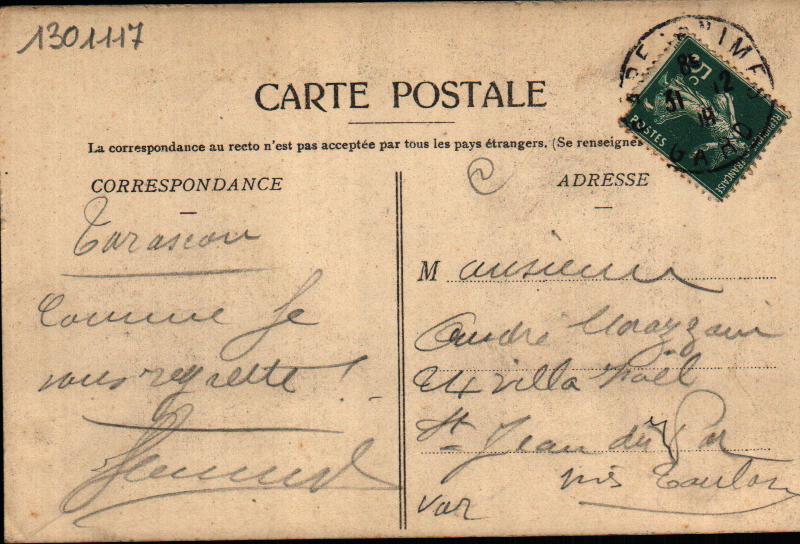 1301117
CARTE POSTALE
La correspondance au recto n'est pas acceptée par tous les pays étrangers. (Se renseigne
CORRESPONDANCE
ADRESSE
Tarascon
Comme je
vous regrette !
Monsieur
André
24 villa Noël
St Jean du Var
près Toulon
Var
NIMES
31 12
GARD
POSTES
5
REPUBLIQUE FRANÇAISE